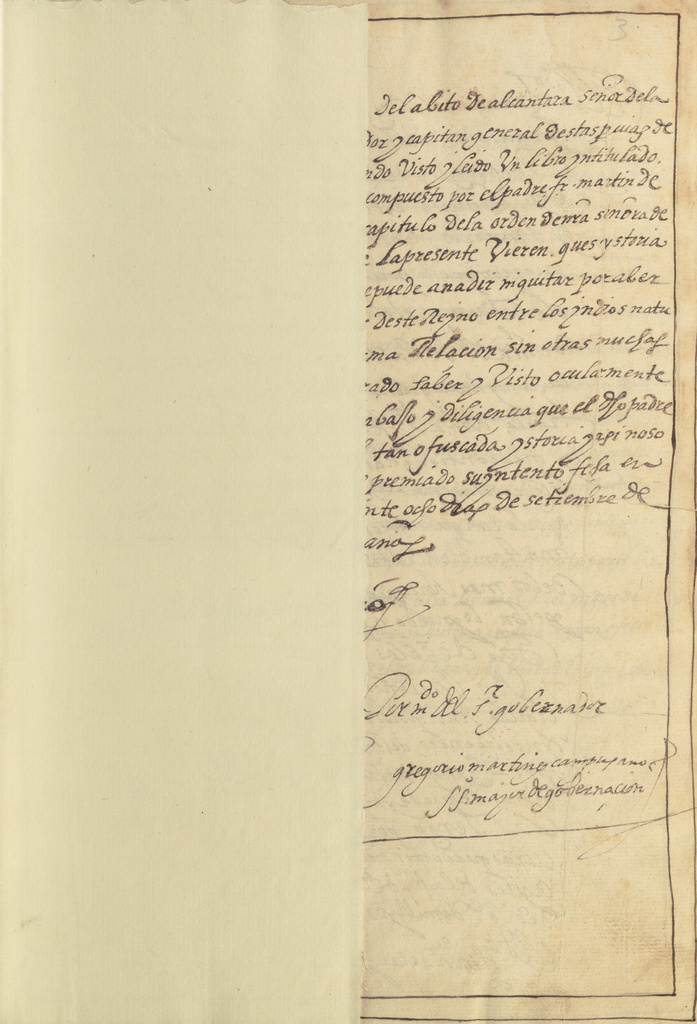 3
del abito de alcantara señor dela
dor y capitan general destas puias de
ndo Visto y leido Un libro yntitulado.
compuesto por el padre fr. martin de
capitulo dela orden de nra señora de
la presente Vieren. ques ystoria
epuede anadir ni quitar por aber
deste Reyno entre los yndios natu
ma Relacion sin otras muchas
rado saber y Visto ocularmente
abajo y diligencia que el dho padre
tan ofuscada ystoria y asi noso
premiado su yntento fcha en
nte ocho dias de setiembre de
años
Por mdo del sr. gobernador
gregorio martinez campuzano
ss. mayor de gobernacion